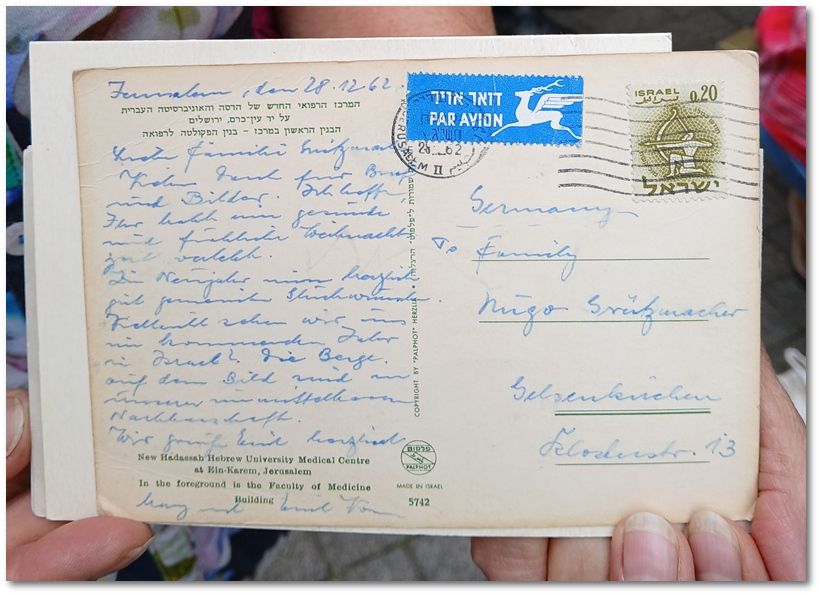 Jerusalem, den 28.12.62.
המרכז הרפואי החדש של הדסה והאוניברסיטה העברית
על יד עין־כרם, ירושלים
הבנין הראשון במרכז – בנין הפקולטה לרפואה
Liebe Familie Grützmacher
Vielen Dank für Brief
und Bilder. Ich hoffe,
Ihr habt eine gesunde
und fröhliche Weihnachts-
zeit verlebt.
Zum Neujahr nun herzlich
gut gemeinte Glückwünsche.
Vielleicht sehen wir uns
im kommenden Jahr
in Israel? Die Berge
auf dem Bild sind in
unserer unmittelbaren
Nachbarschaft.
Wir grüßen Euch herzlich
New Hadassah Hebrew University Medical Centre
at Ein-Karem, Jerusalem
In the foreground is the Faculty of Medicine
Building
und
COPYRIGHT BY "PALPHOT" HERZLIA
פלפוט
PALPHOT
MADE IN ISRAEL
5742
דואר אויר
PAR AVION
JERUSALEM
62
II
ISRAEL
0.20
ישראל
Germany
To Family
Hugo Grützmacher
Gelsenkirchen
13